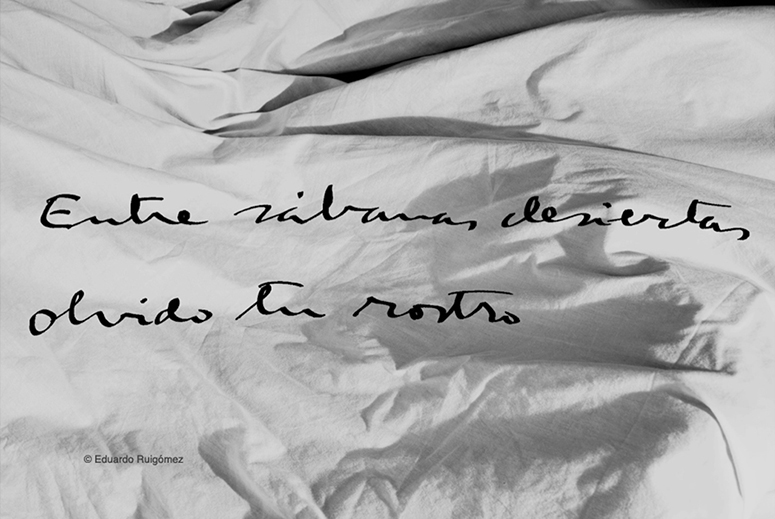 Entre sábanas desiertas
olvido tu rostro
© Eduardo Ruigómez